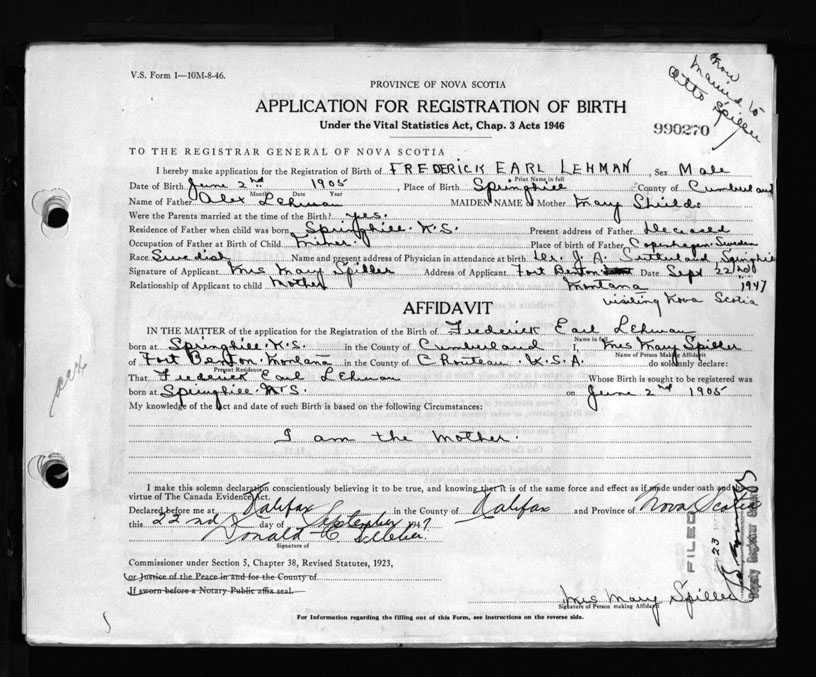 V.S. Form 1—10M-8-46.
now
Married to
Otto Spiller
PROVINCE OF NOVA SCOTIA
APPLICATION FOR REGISTRATION OF BIRTH
Under the Vital Statistics Act, Chap. 3 Acts 1946
990270
TO THE REGISTRAR GENERAL OF NOVA SCOTIA
I hereby make application for the Registration of Birth of FREDERICK EARL LEHMAN, Sex Male
Print Name in full
Date of Birth June 2nd 1905, Place of Birth Springhill County of Cumberland
Month Date Year
Name of Father Alex Lehman MAIDEN NAME of Mother Mary Shields
Were the Parents married at the time of the Birth? yes.
Residence of Father when child was born Springhill. N.S. Present address of Father Deceased
Occupation of Father at Birth of Child miner. Place of birth of Father Copenhagen. Sweden
Race Swedish Name and present address of Physician in attendance at birth Dr. J. A. Sutherland, Springhill
Signature of Applicant Mrs Mary Spiller Address of Applicant Fort Benton Date Sept 22nd
Relationship of Applicant to child Mother Montana 1947
visiting Nova Scotia
AFFIDAVIT
IN THE MATTER of the application for the Registration of the Birth of Frederick Earl Lehman
Name in full
born at Springhill. N.S. in the County of Cumberland I, Mrs Mary Spiller
Name of Person Making Affidavit
of Fort Benton. Montana in the County of Chouteau. U.S.A. do solemnly declare:
Present Residence
That Frederick Earl Lehman Whose Birth is sought to be registered was
born at Springhill N.S. on June 2nd 1905
My knowledge of the fact and date of such Birth is based on the following Circumstances:
I am the Mother.
I make this solemn declaration conscientiously believing it to be true, and knowing that it is of the same force and effect as if made under oath and by
virtue of The Canada Evidence Act.
Declared before me at Halifax in the County of Halifax and Province of Nova Scotia
this 22nd day of September 1947
Donald
Signature of
Commissioner under Section 5, Chapter 38, Revised Statutes, 1923,
(or Justice of the Peace in and for the County of
If sworn before a Notary Public affix seal.
FILED
23
Deputy Registrar
Mrs Mary Spiller
Signature of Person making Affidavit
For Information regarding the filling out of this Form, see instructions on the reverse side.